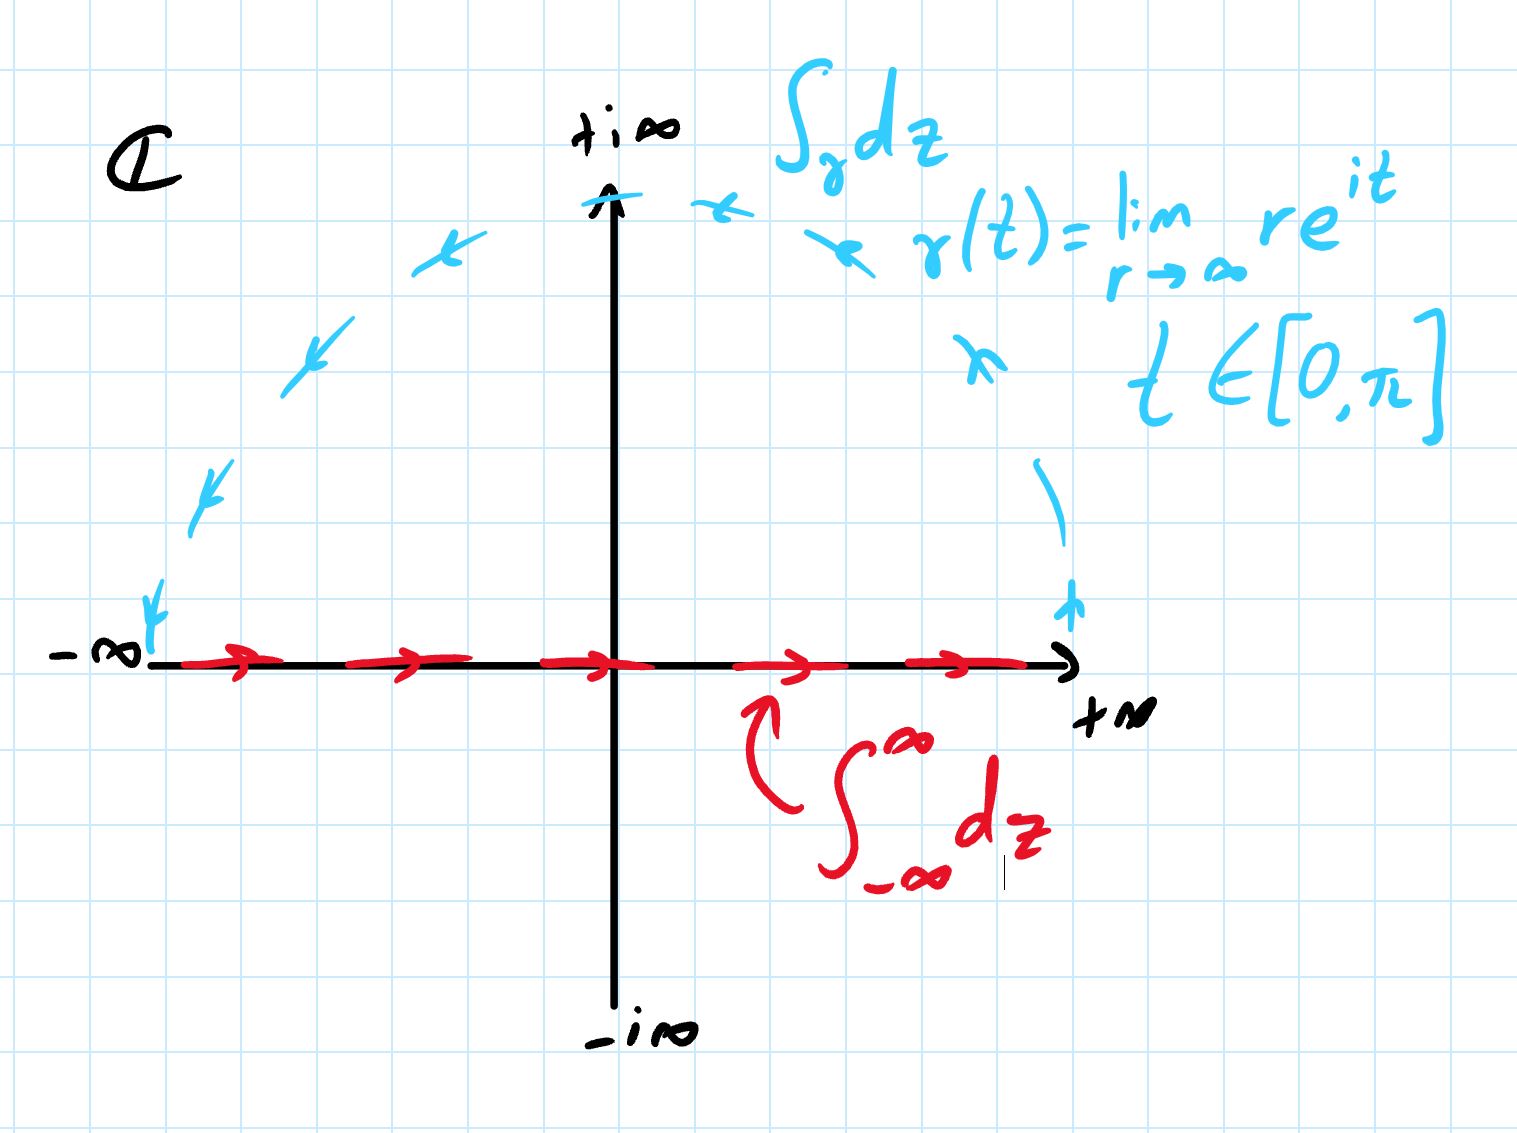 ℂ
+i∞
∫_γ dz
γ(t) = lim_{r→∞} re^{it}
t ∈ [0, π]
-∞
+∞
∫_{-∞}^{∞} dz
-i∞